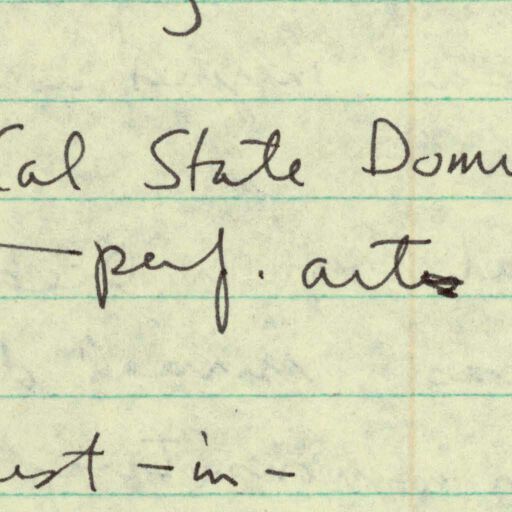 Cal State Domi
— perf. arts
est - in -